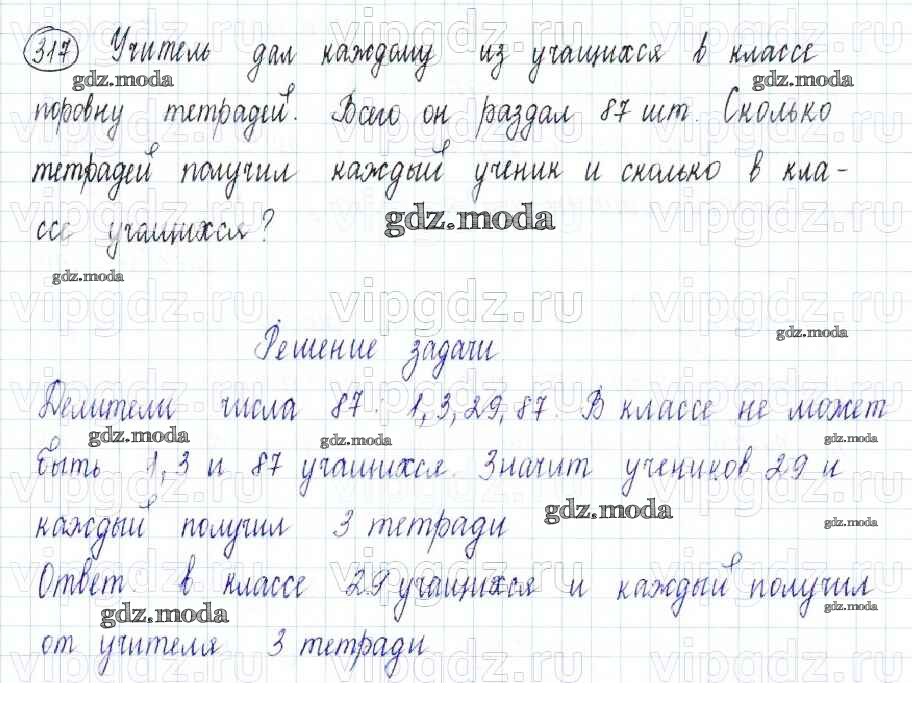 317 Учитель дал каждому из учащихся в классе
поровну тетрадей. Всего он раздал 87 шт. Сколько
тетрадей получил каждый ученик и сколько в кла-
ссе учащихся?
Решение задачи
Делители числа 87: 1, 3, 29, 87. В классе не может
быть 1, 3 и 87 учащихся. Значит учеников 29 и
каждый получил 3 тетради
Ответ. в классе 29 учащихся и каждый получил
от учителя 3 тетради
gdz.moda
vipgdz.ru